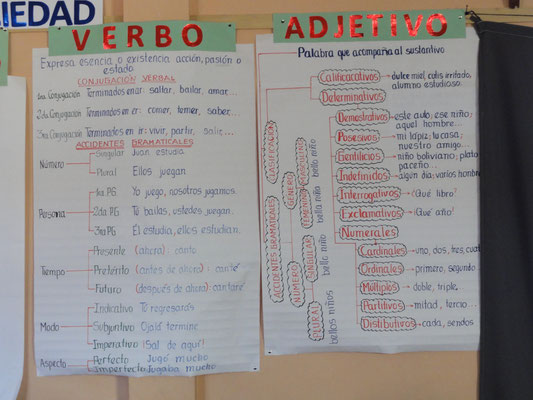 IEDAD
VERBO
Expresa esencia o existencia acción, pasión o
estado
CONJUGACIÓN VERBAL
1ra Conjugación Terminados en ar: saltar, bailar, amar...
2da Conjugación Terminados en er: comer, temer, saber...
3ra Conjugación Terminados en ir: vivir, partir, salir...
ACCIDENTES GRAMATICALES
Número
Singular Juan estudia
Plural Ellos juegan
Persona
1ra PG Yo juego, nosotros jugamos
2da PG Tú bailas, ustedes juegan.
3ra PG Él estudia, ellos estudian.
Tiempo
Presente (ahora): canto
Pretérito (antes de ahora): canté
Futuro (después de ahora): cantaré
Modo
Indicativo Tú regresarás
Subjuntivo Ojalé termine
Imperativo ¡Sal de aquí!
Aspecto
Perfecto Jugó mucho
Imperfecto Jugaba mucho
ADJETIVO
Palabra que acompaña al sustantivo
CLASIFICACIÓN
Calificacativos dulce miel, calis irritado,
alumno estudioso.
Determinativos
Demostrativos este auto, ese niño;
aquel hombre...
Posesivos mi lápiz; tu casa;
nuestro amigo...
Gentilicios niño boliviano; plato
paceño...
Indefinidos algún día; varios hombre
Interrogativos ¿Qué libro?
Exclamativos ¡Qué año!
Numerales
Cardinales uno, dos, tres, cuat
Ordinales primero, segundo
Múltiplos doble, triple,
Partitivos mitad, tercio...
Distibutivos cada, sendos
ACCIDENTES GRAMATICALES
GÉNERO
FEMENINO
bella niña
MASCULINO
bello niño
NÚMERO
SINGULAR
bello niño
PLURAL
bellos niños